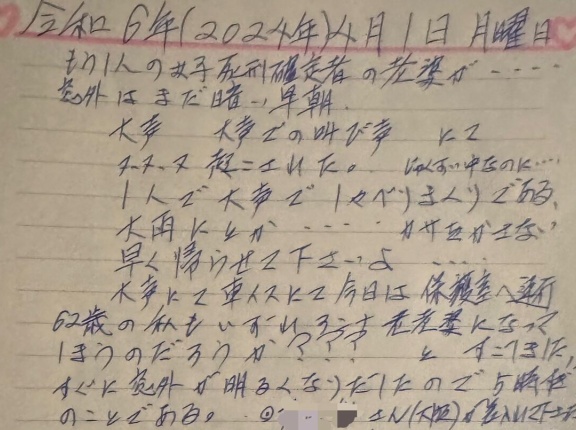 令和6年(2024年)4月1日 月曜日
もう1人の女子死刑確定者の老婆が‥‥
窓外はまだ暗い早朝、
大声 大声での叫び声 にて
ヌヌヌ 起こされた。 じゅくすい中なのに‥‥
1人で大声で1ゃべりまくりである。
大雨にとか ‥‥ カサをかさない
早く帰らせて下さいよ ‥‥
大声にて車イスにて今日は保護室へ連行
62歳の私もいずれろうす 老老婆になって
1まうのだろうか???? と
すぐに窓外が明るくなりだ1たので5時
のことである。 さん(大阪)が差入れて下さ